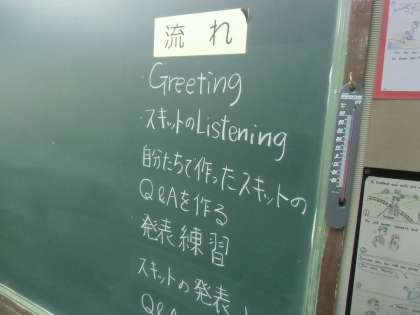 流れ
・Greeting
・スキットのListening
自分たちで作ったスキットの
Q&Aを作る
発表練習
スキットの発表
Q&A